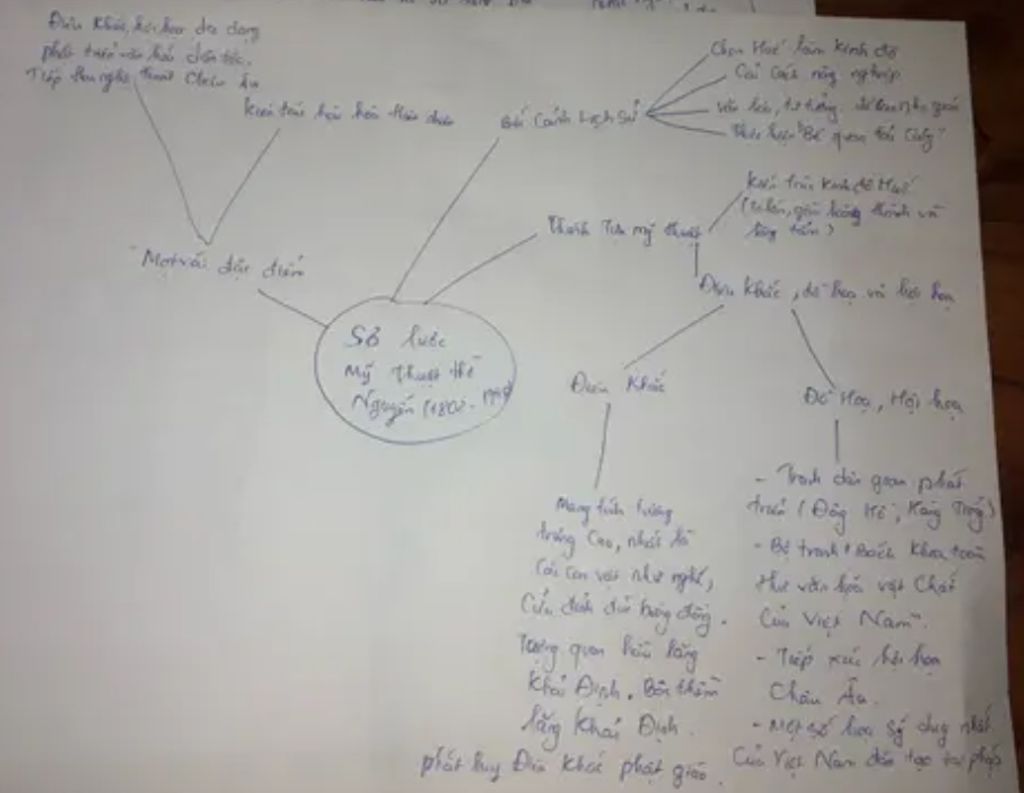 Điêu khắc, hội họa đa dạng
phát triển văn hóa dân tộc.
Tiếp thu nghệ thuật Châu Âu
Kiến trúc hài hòa thiên nhiên
Một vài đặc điểm
Bối Cảnh Lịch Sử
Chọn Huế làm Kinh đô
Cải Cách nông nghiệp
Văn hóa, tư tưởng: đề cao nho giáo
Thực hiện "Bế quan tỏa Cảng"
Thành Tựu mỹ thuật
Kiến trúc Kinh đô Huế
thành và
lăng tẩm)
Điêu Khắc, đồ họa và hội họa
Sơ lược
Mỹ thuật thời
Nguyễn (1802 - 1945)
Điêu Khắc
Mang tính tượng
trưng Cao, nhất là
Các Con vật như nghê,
Cửu đỉnh đúc bằng đồng.
Tượng quan hầu lăng
Khải Định.
lăng Khải Định.
phát huy Điêu Khắc phật giáo.
Đồ Họa, Hội họa
- Tranh dân gian phát
triển (Đông Hồ, Hàng Trống)
- Bộ tranh "Bách Khoa toàn
thư văn hóa vật Chất
Của Việt Nam".
- Tiếp xúc hội họa
Châu Âu.
- Một số họa sỹ duy nhất
Của Việt Nam đào tạo tại pháp